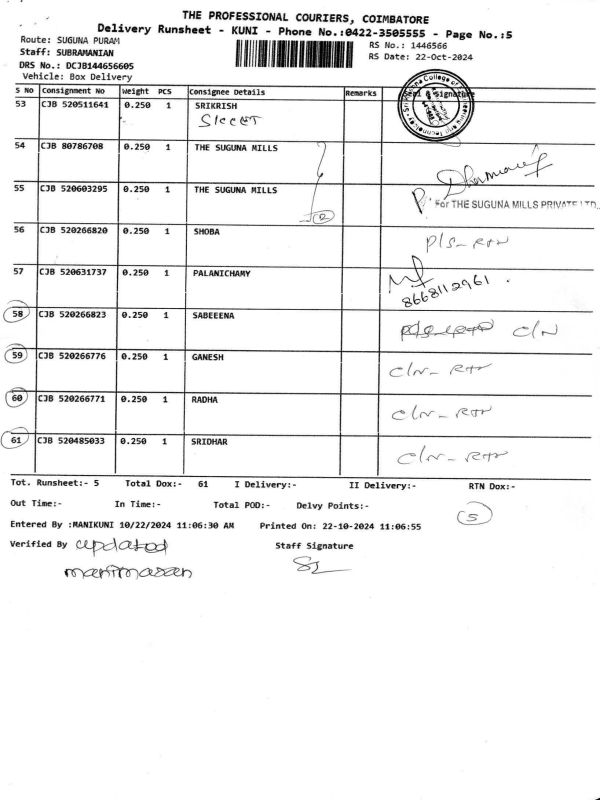 THE PROFESSIONAL COURIERS, COIMBATORE
Delivery Runsheet - KUNI - Phone No.:0422-3505555 - Page No.:5
Route: SUGUNA PURAM
RS No.: 1446566
Staff: SUBRAMANIAN
RS Date: 22-Oct-2024
DRS No.: DCJB144656605
Vehicle: Box Delivery
S No Consignment No Weight PCS Consignee Details Remarks Signature
53 CJB 520511641 0.250 1 SRIKRISH
54 CJB 80786708 0.250 1 THE SUGUNA MILLS
55 CJB 520603295 0.250 1 THE SUGUNA MILLS
For THE SUGUNA MILLS PRIVATE LTD.,
56 CJB 520266820 0.250 1 SHOBA P/S-RTN
57 CJB 520631737 0.250 1 PALANICHAMY
8668112961
58 CJB 520266823 0.250 1 SABEEENA C/N
59 CJB 520266776 0.250 1 GANESH C/N-RTN
60 CJB 520266771 0.250 1 RADHA C/N-RTN
61 CJB 520485033 0.250 1 SRIDHAR C/N-RTN
Tot. Runsheet:- 5 Total Dox:- 61 I Delivery:- II Delivery:- RTN Dox:-
Out Time:- In Time:- Total POD:- Delvy Points:- 5
Entered By :MANIKUNI 10/22/2024 11:06:30 AM Printed On: 22-10-2024 11:06:55
Verified By updated Staff Signature
manimaran